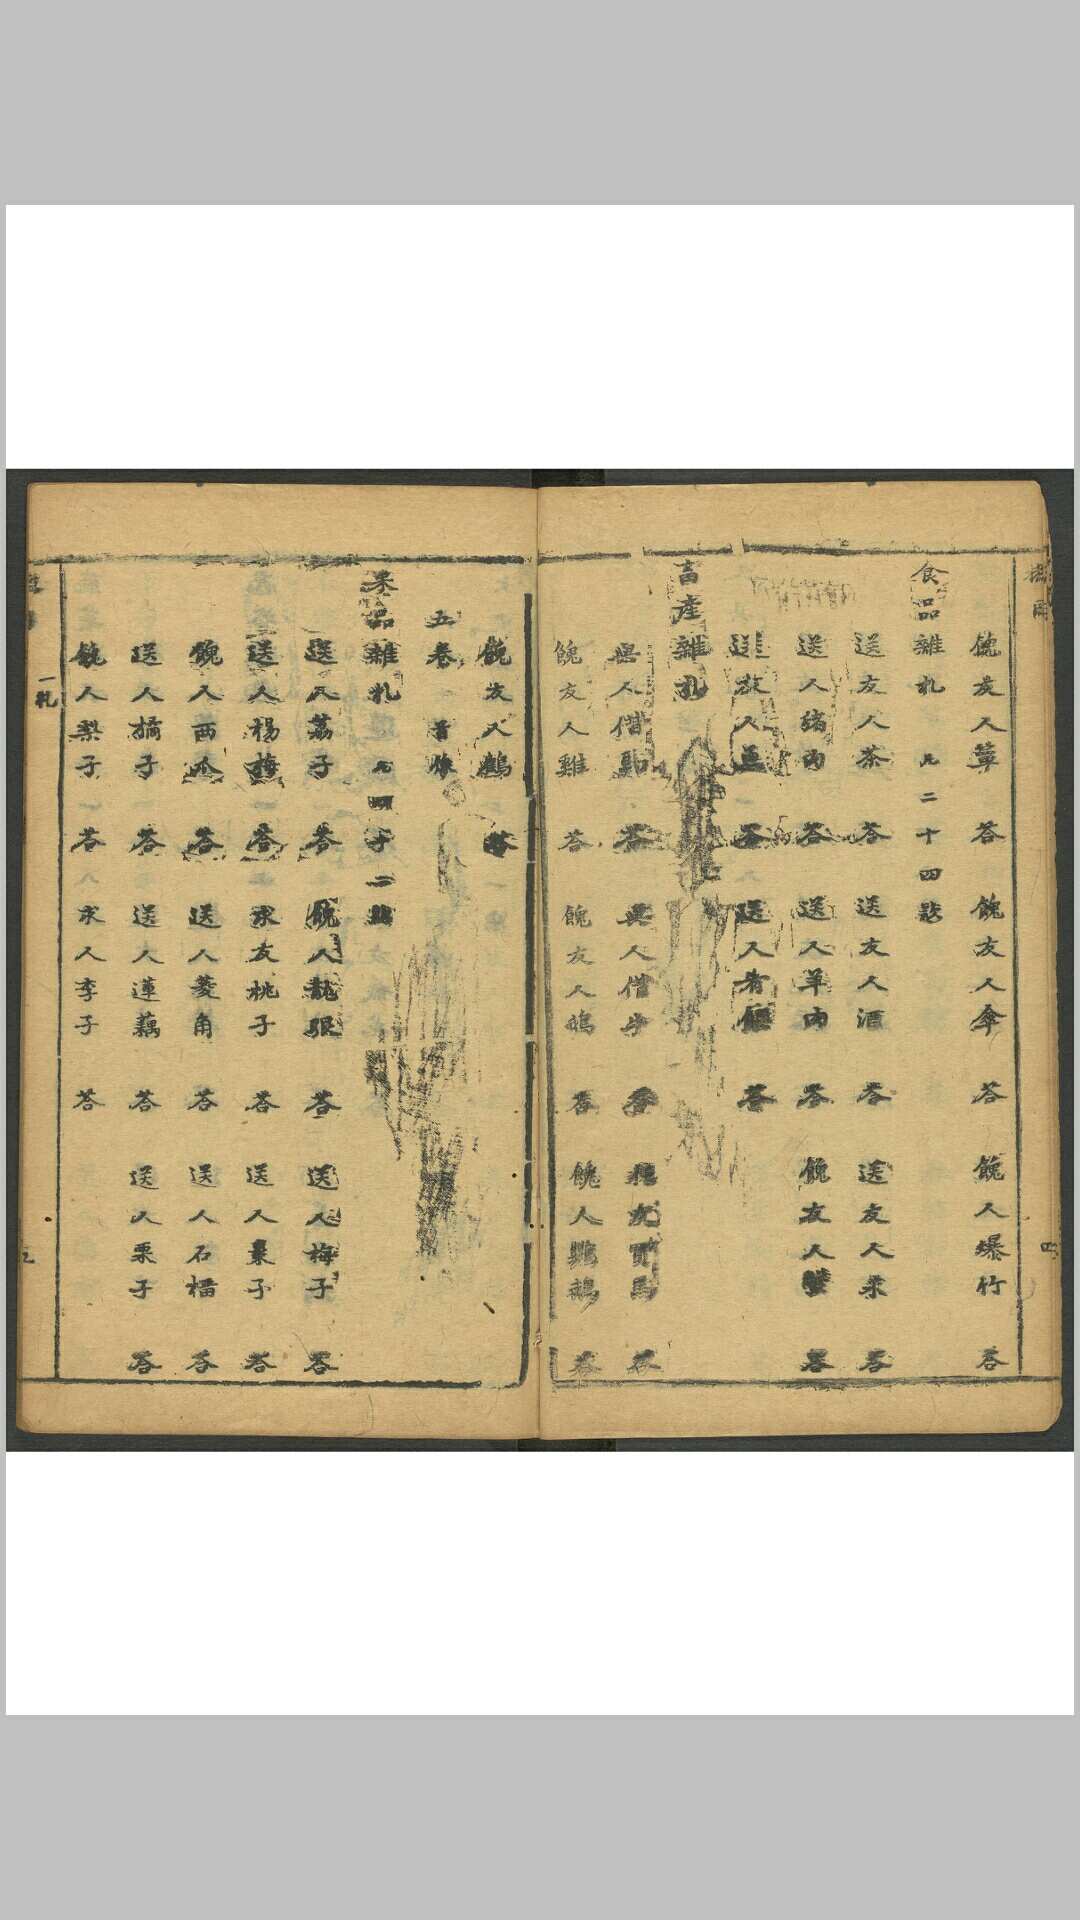 餽友人簟 答 餽友人傘 答 餽人爆竹 答
食品雜札 凡二十四㰖
送友人茶 答 送友人酒 答 送友人米 答
送人猪肉 答 送人羊肉 答 餽友人蟹 答
送友人魚 答 送人 答
畜產雜札
與人借馬 答 與人借步 答 友買馬 答
餽友人雞 答 餽友人鴿 答 餽人 答
餽友人鶴 答
五卷
果品雜札
送人荔子 答 餽人龍眼 答 送人梅子 答
送人楊梅 答 求友桃子 答 送人棗子 答
餽人西瓜 答 送人菱角 答 送人石榴 答
送人橘子 答 送人蓮藕 答 送人栗子 答
餽人梨子 答 求人李子 答